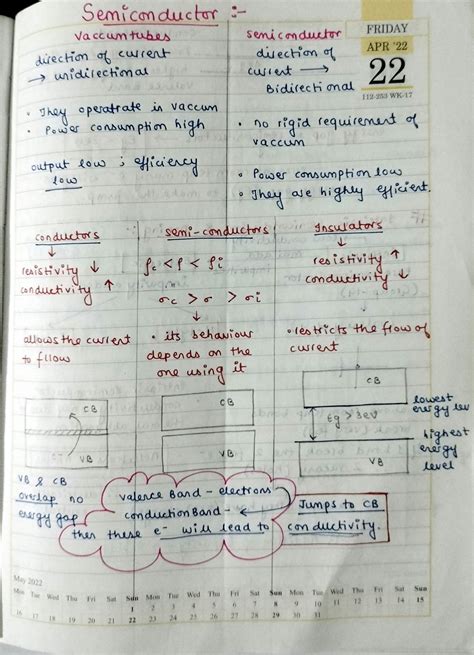 Semiconductor :-
vaccum tubes
direction of current
→ unidirectional
• They operatrate in vaccum
• Power consumption high
output low ; efficiency
low
semiconductor
direction of
current →
Bidirectional
• no rigid requirement of
vaccum
• Power consumption low
• They are highly efficient.
FRIDAY
APR '22
22
112-253 WK-17
conductors
↓
resistivity ↓
conductivity ↑
allows the current
to fllow
semi-conductors
ρc < ρ < ρi
σc > σ > σi
↓
• its behaviour
depends on the
one using it
Insulators
↓
resistivity ↑
conductivity ↓
• restricts the flow of
current
CB
VB
CB
VB
CB
Eg > 3eV
VB
lowest
energy lev
highest
energy
level
VB & CB
overlap no
energy gap
valence Band - electrons
conduction Band - ←
then these e⁻ will lead to
Jumps to CB
conductivity.
May 2022
Mon Tue Wed Thu Fri Sat Sun Mon Tue Wed Thu Fri Sat Sun Mon Tue Wed Thu Fri Sat Sun
1 2 3 4 5 6 7 8 9 10 11 12 13 14 15
16 17 18 19 20 21 22 23 24 25 26 27 28 29 30 31